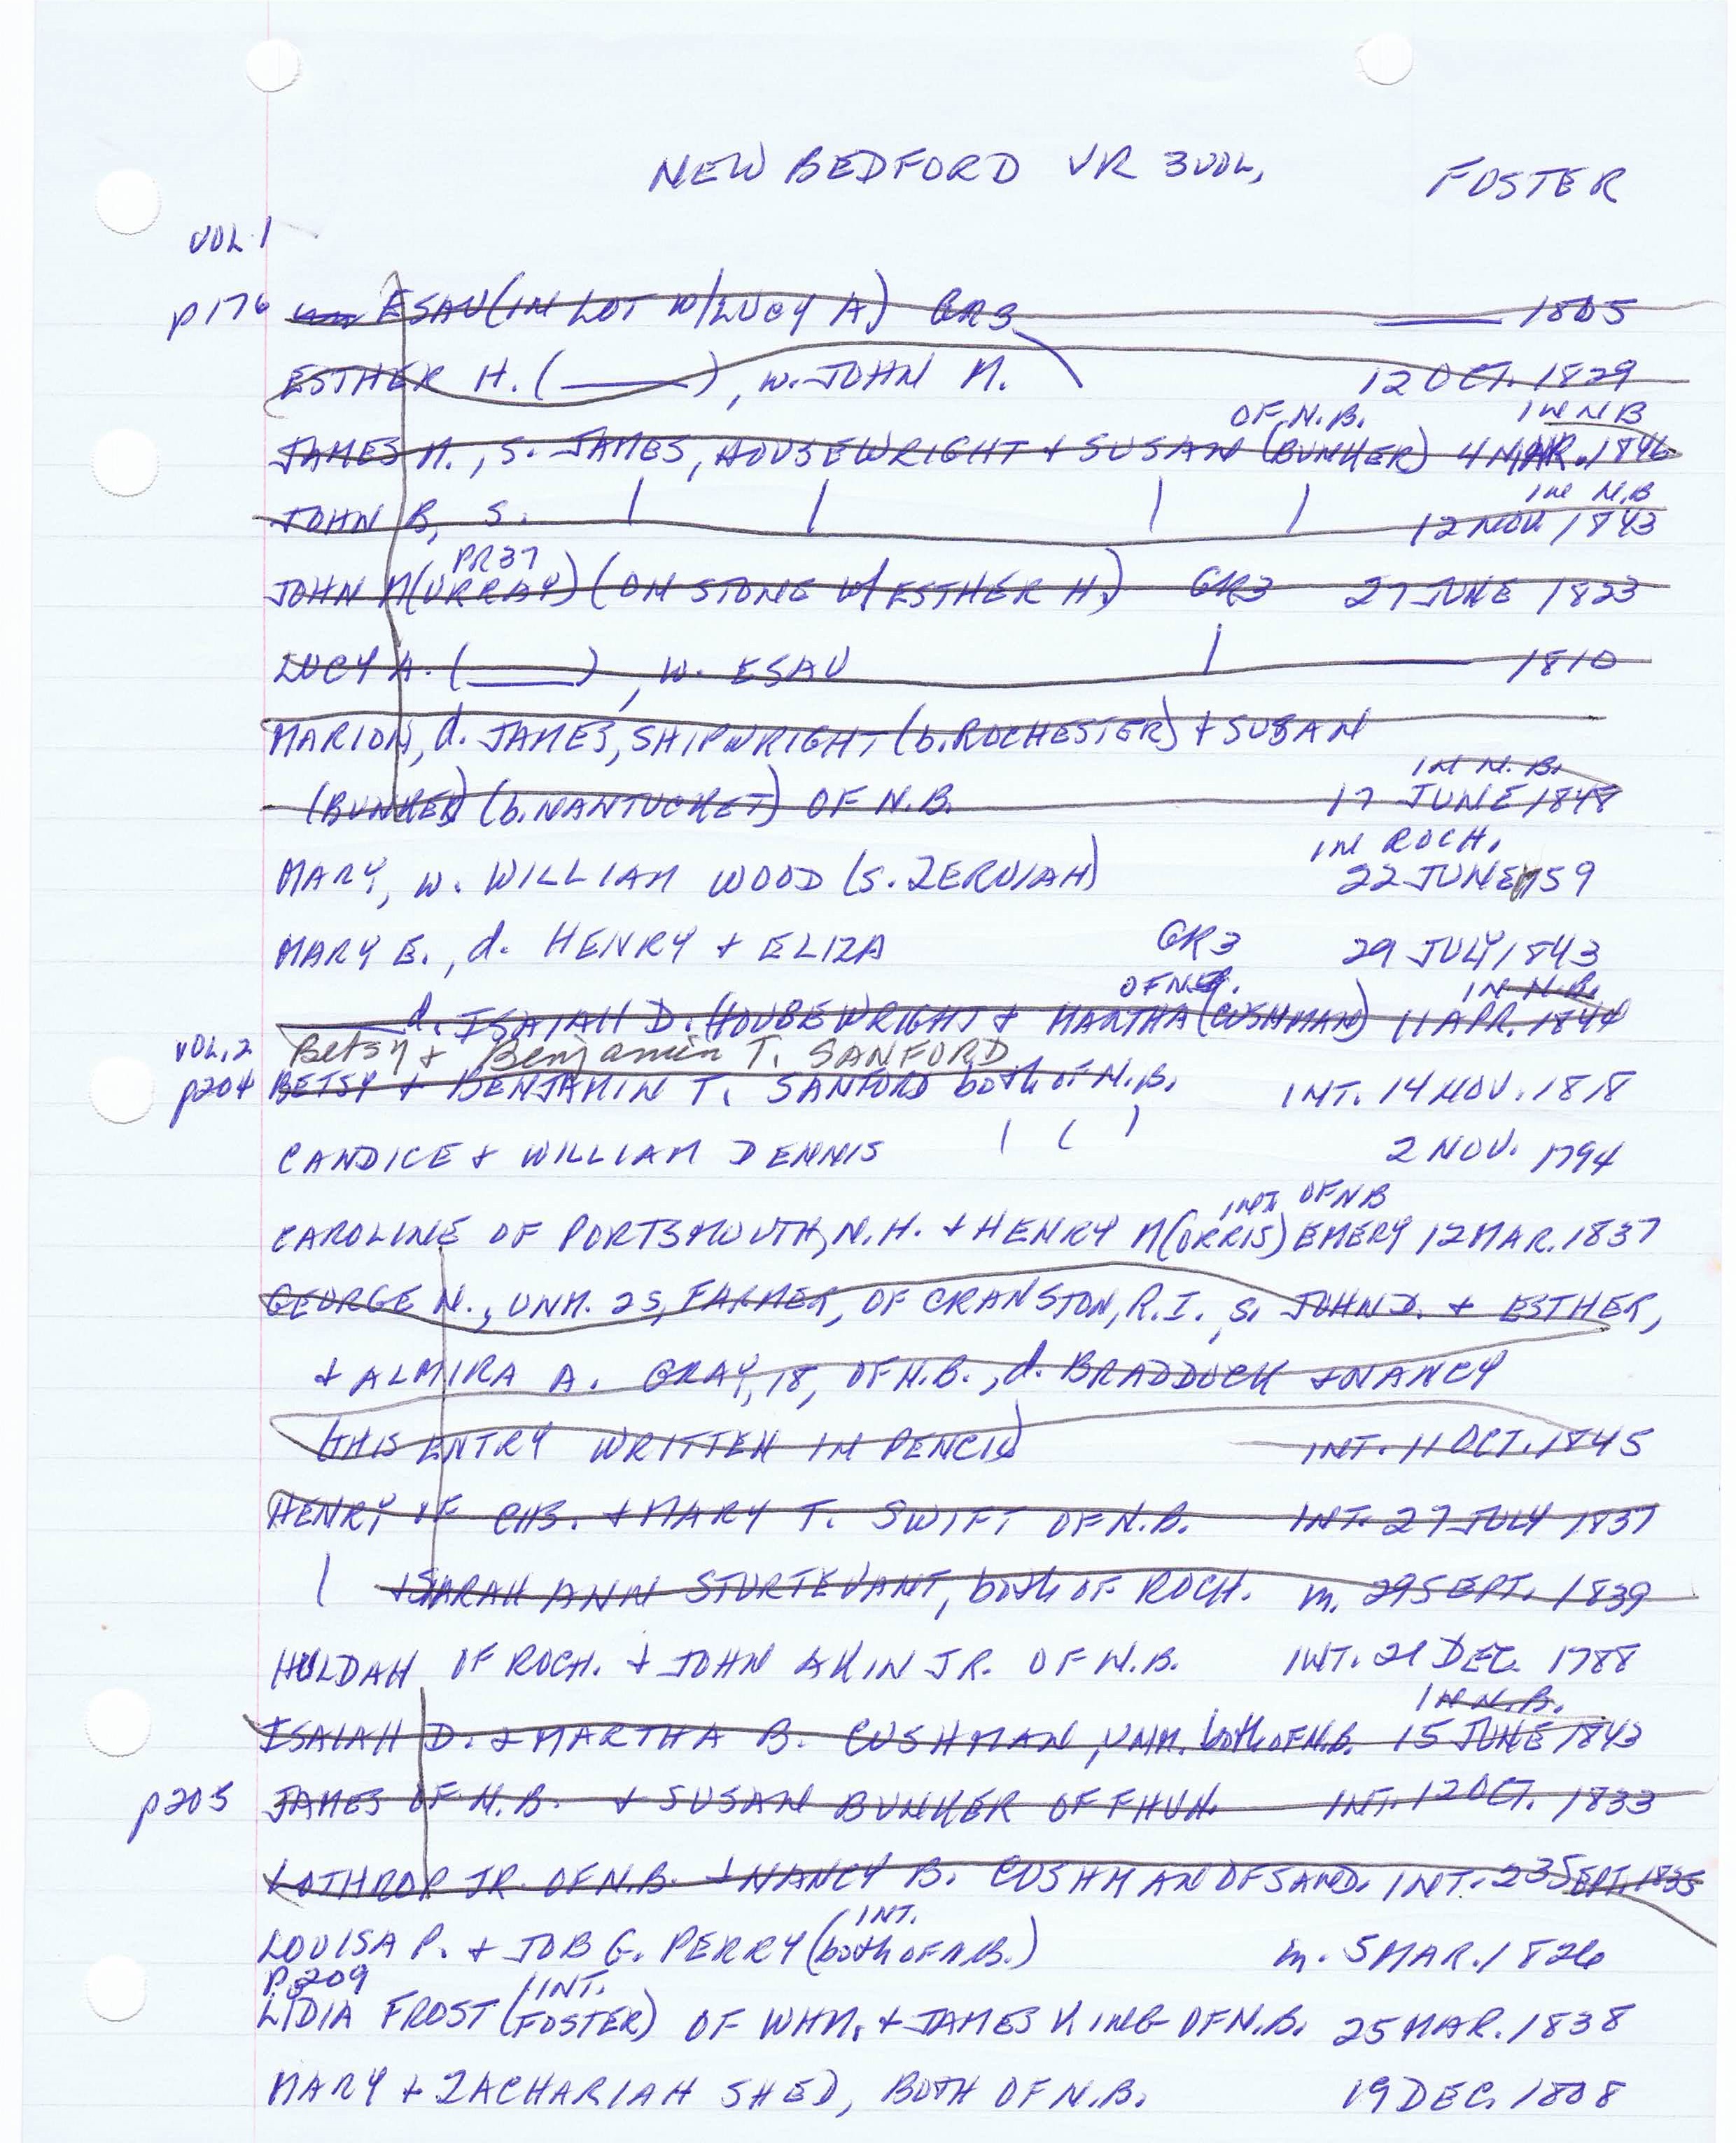 NEW BEDFORD VR 3 VOL, FOSTER
VOL 1
p176 ESAU (IN LOT W/LUCY A) GR3 ——— 1805
ESTHER H. (———), W. JOHN M. 12 OCT. 1829
OF N.B. IN N B
JAMES M., S. JAMES, HOUSEWRIGHT + SUSAN (BUNKER) 4 MAR. 1846
IN N.B
JOHN B, S. | | | | 12 NOV. 1843
PR37
JOHN M(URRAY) (ON STONE W/ ESTHER H.) GR3 27 JUNE 1823
LUCY A. (———), W. ESAU | ——— 1810
MARION, d. JAMES, SHIPWRIGHT (b. ROCHESTER) + SUSAN
IN N. B.
(BUNKER) (b. NANTUCKET) OF N.B. 17 JUNE 1848
IN ROCH.
MARY, W. WILLIAM WOOD (S. ZERUIAH) 22 JUNE 1759
MARY E., d. HENRY + ELIZA GR3 29 JULY 1843
OF N.B. IN N.B.
——— d. ISAIAH D. (HOUSEWRIGHT) + MARTHA (CUSHMAN) 11 APR. 1844
VOL. 2 Betsy + Benjamin T. SANFORD
p204 BETSY + BENJAMIN T. SANFORD both of N.B. INT. 14 NOV. 1818
CANDICE + WILLIAM DENNIS | | | 2 NOV. 1794
INT. OF NB
CAROLINE OF PORTSMOUTH, N.H. + HENRY M(ORRIS) EMERY 12 MAR. 1837
GEORGE N., UNM. 25, FARMER, OF CRANSTON, R.I., S. JOHN D. + ESTHER,
+ ALMIRA A. GRAY, 18, OF N.B., d. BRADDOCK + NANCY
(THIS ENTRY WRITTEN IN PENCIL) INT. 11 OCT. 1845
HENRY OF CHB. + MARY T. SWIFT OF N.B. INT. 27 JULY 1837
| + SARAH ANN STURTEVANT, both OF ROCH. m. 29 SEPT. 1839
HULDAH OF ROCH. + JOHN AKIN JR. OF N.B. INT. 21 DEC. 1788
IN N.B.
ISAIAH D. + MARTHA B. CUSHMAN, UNM. both OF N.B. 15 JUNE 1843
p205 JAMES OF N.B. + SUSAN BUNKER OF FHVN. INT. 12 OCT. 1833
LOTHROP JR. OF N.B. + NANCY B. CUSHMAN OF SAND. INT. 23 SEPT. 1835
INT.
LOUISA P. + JOB G. PERRY (both OF N.B.) m. 5 MAR. 1826
P. 209 INT.
LIDIA FROST (FOSTER) OF WHM. + JAMES KING OF N.B. 25 MAR. 1838
MARY + ZACHARIAH SHED, BOTH OF N.B. 19 DEC. 1808